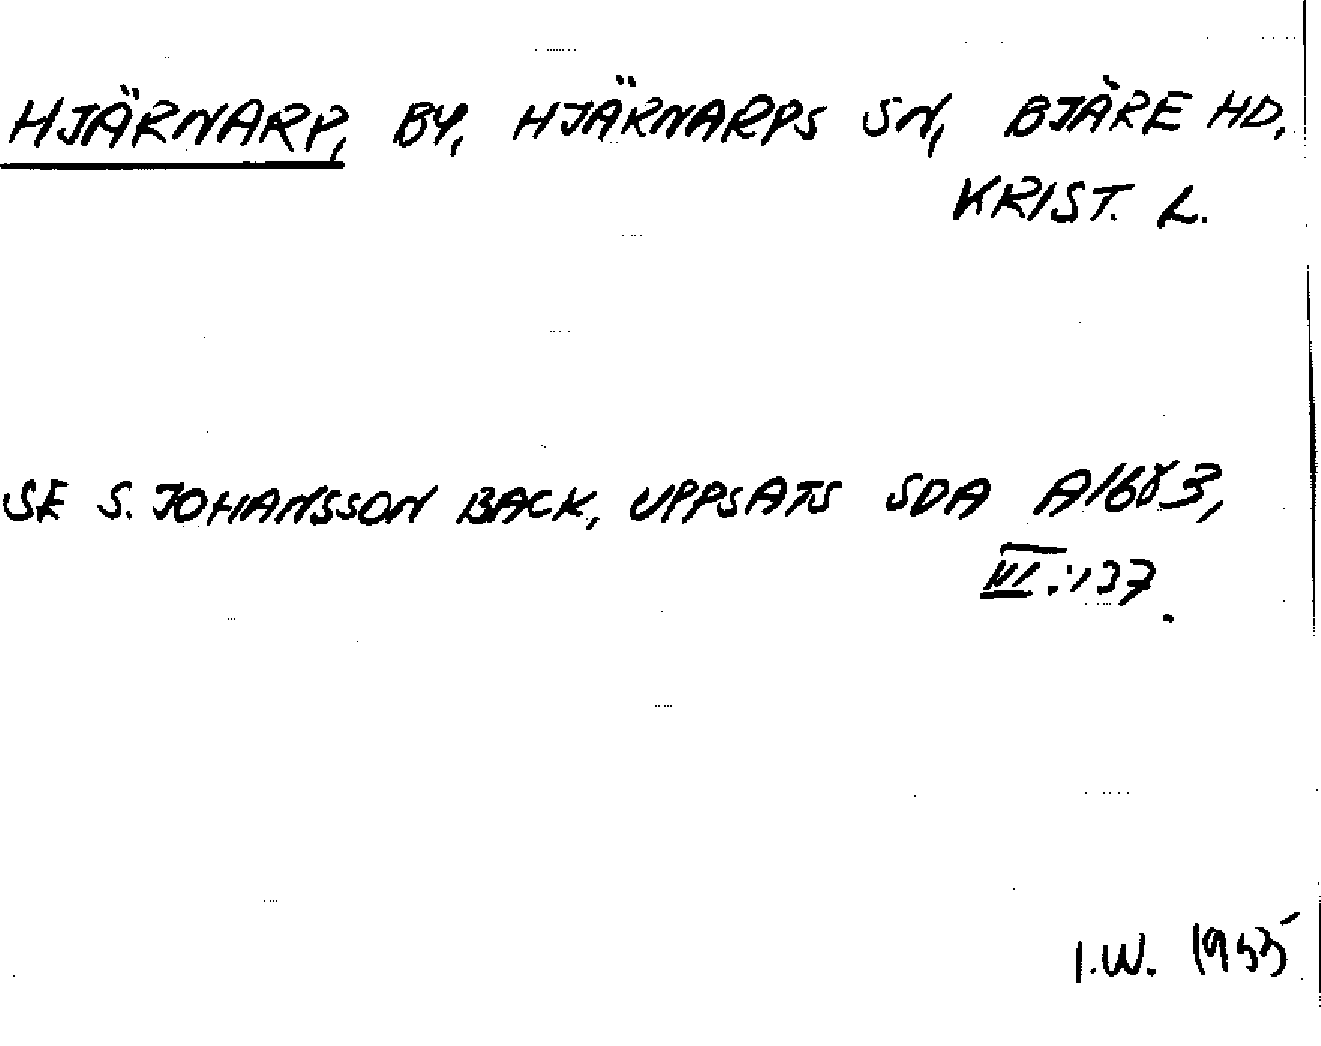 HJÄRNARP, BY, HJÄRNARPS SN, BJÄRE HD,
KRIST. L.
SE S. JOHANSSON BACK, UPPSATS SDA A1683,
III:137.
I.W. 1955